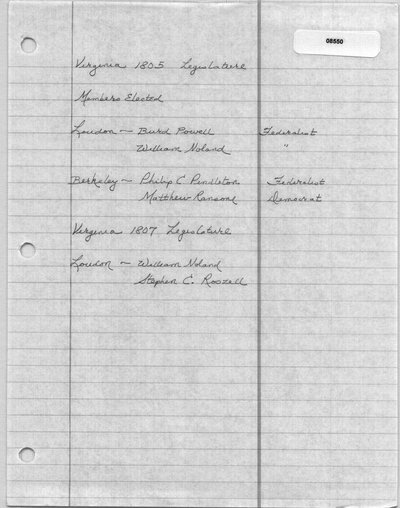 08550
Virginia 1805 Legislature
Members Elected
Loudon — Burd Powell Federalist
William Noland "
Berkeley — Philip C Pendleton Federalist
Matthew Ransone Democrat
Virginia 1807 Legislature
Loudon — William Noland
Stephen C. Roszell